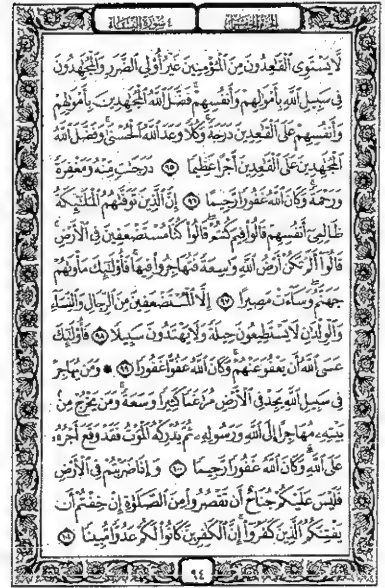 الجزء الخامس
٤ سورة النساء
لَّا يَسْتَوِى ٱلْقَٰعِدُونَ مِنَ ٱلْمُؤْمِنِينَ غَيْرُ أُو۟لِى ٱلضَّرَرِ وَٱلْمُجَٰهِدُونَ
فِى سَبِيلِ ٱللَّهِ بِأَمْوَٰلِهِمْ وَأَنفُسِهِمْ فَضَّلَ ٱللَّهُ ٱلْمُجَٰهِدِينَ بِأَمْوَٰلِهِمْ
وَأَنفُسِهِمْ عَلَى ٱلْقَٰعِدِينَ دَرَجَةً وَكُلًّا وَعَدَ ٱللَّهُ ٱلْحُسْنَىٰ وَفَضَّلَ ٱللَّهُ
ٱلْمُجَٰهِدِينَ عَلَى ٱلْقَٰعِدِينَ أَجْرًا عَظِيمًا ٩٥ دَرَجَٰتٍ مِّنْهُ وَمَغْفِرَةً
وَرَحْمَةً وَكَانَ ٱللَّهُ غَفُورًا رَّحِيمًا ٩٦ إِنَّ ٱلَّذِينَ تَوَفَّىٰهُمُ ٱلْمَلَٰٓئِكَةُ
ظَالِمِىٓ أَنفُسِهِمْ قَالُوا۟ فِيمَ كُنتُمْ قَالُوا۟ كُنَّا مُسْتَضْعَفِينَ فِى ٱلْأَرْضِ
قَالُوٓا۟ أَلَمْ تَكُنْ أَرْضُ ٱللَّهِ وَٰسِعَةً فَتُهَاجِرُوا۟ فِيهَا فَأُو۟لَٰٓئِكَ مَأْوَىٰهُمْ
جَهَنَّمُ وَسَآءَتْ مَصِيرًا ٩٧ إِلَّا ٱلْمُسْتَضْعَفِينَ مِنَ ٱلرِّجَالِ وَٱلنِّسَآءِ
وَٱلْوِلْدَٰنِ لَا يَسْتَطِيعُونَ حِيلَةً وَلَا يَهْتَدُونَ سَبِيلًا ٩٨ فَأُو۟لَٰٓئِكَ
عَسَى ٱللَّهُ أَن يَعْفُوَ عَنْهُمْ وَكَانَ ٱللَّهُ عَفُوًّا غَفُورًا ٩٩ ۞ وَمَن يُهَاجِرْ
فِى سَبِيلِ ٱللَّهِ يَجِدْ فِى ٱلْأَرْضِ مُرَٰغَمًا كَثِيرًا وَسَعَةً وَمَن يَخْرُجْ مِنۢ
بَيْتِهِۦ مُهَاجِرًا إِلَى ٱللَّهِ وَرَسُولِهِۦ ثُمَّ يُدْرِكْهُ ٱلْمَوْتُ فَقَدْ وَقَعَ أَجْرُهُۥ
عَلَى ٱللَّهِ وَكَانَ ٱللَّهُ غَفُورًا رَّحِيمًا ١٠٠ وَإِذَا ضَرَبْتُمْ فِى ٱلْأَرْضِ
فَلَيْسَ عَلَيْكُمْ جُنَاحٌ أَن تَقْصُرُوا۟ مِنَ ٱلصَّلَوٰةِ إِنْ خِفْتُمْ أَن
يَفْتِنَكُمُ ٱلَّذِينَ كَفَرُوٓا۟ إِنَّ ٱلْكَٰفِرِينَ كَانُوا۟ لَكُمْ عَدُوًّا مُّبِينًا ١٠١
٩٤